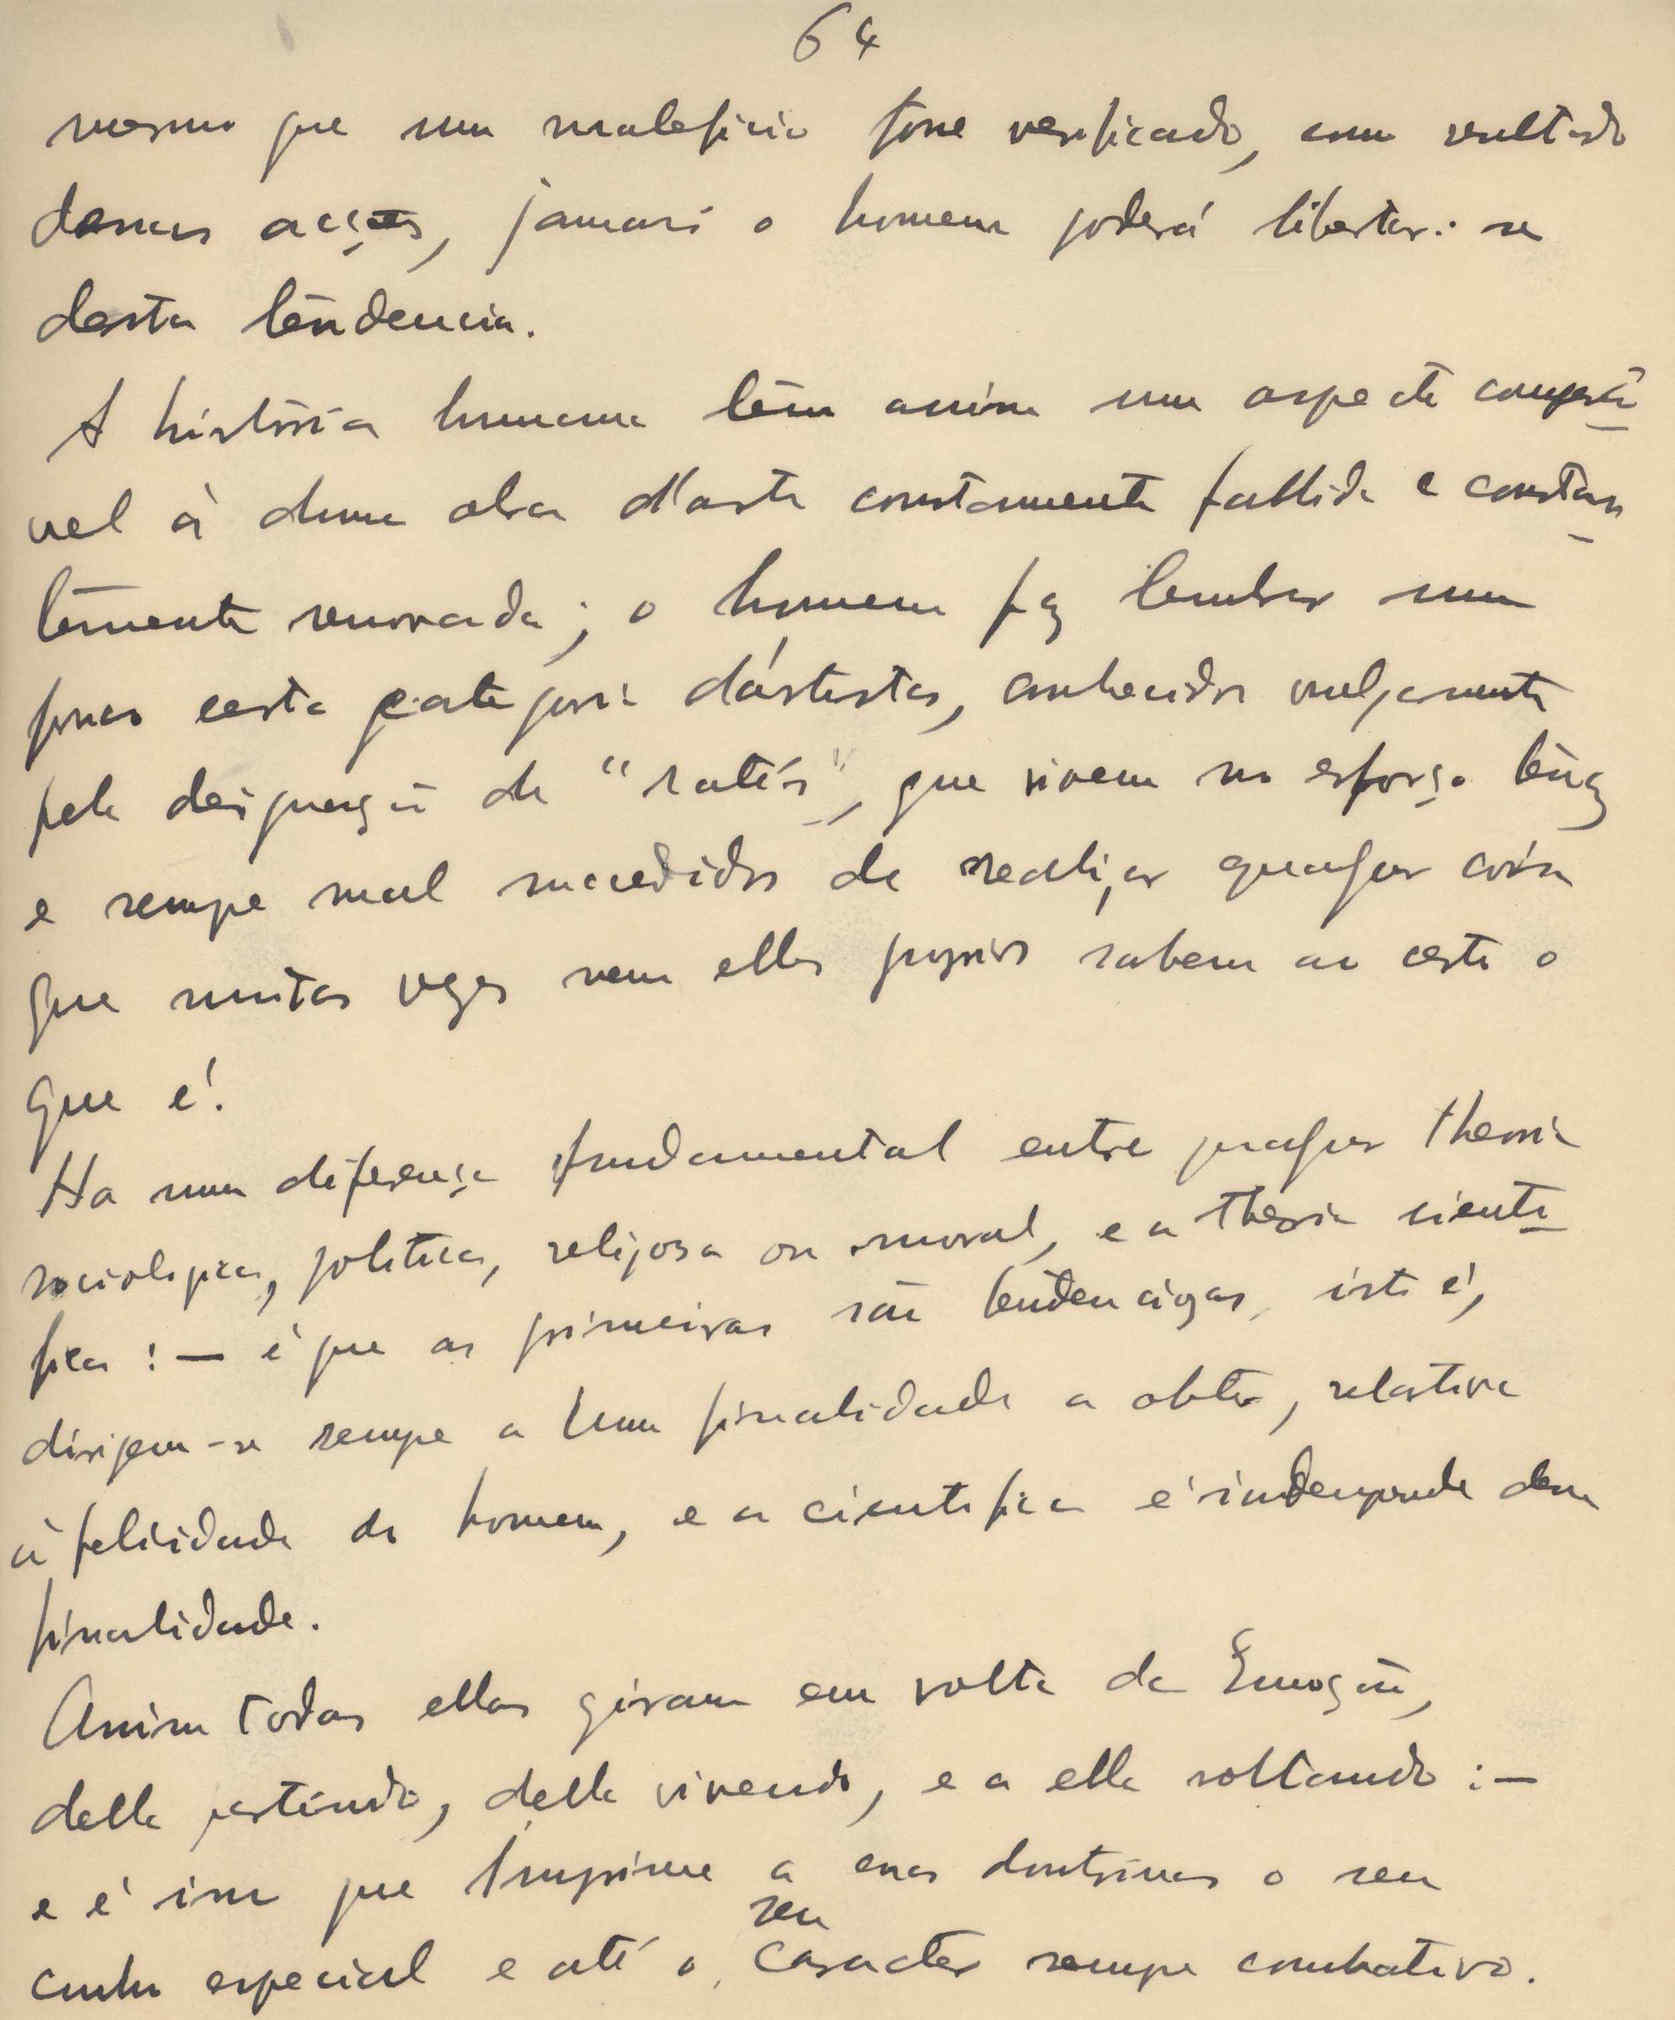 64
mesmo que um maleficio fosse verificado, como resultado
dessas acções, jamais o homem poderá libertar-se
desta tendencia.
A história humana tem assim um aspecto compará
vel à duma obra d'arte constantemente fallida e constan
temente renovada; o homem faz lembrar uma
certa categoria d'artistas, conhecidos vulgarmente
pela designação de "ratés", que vivem no esforço tenaz
e sempre mal succedidos de realizar qualquer coisa
que muitas vezes nem elles proprios sabem ao certo o
que é.
Ha uma diferença fundamental entre qualquer theoria
sociologica, politica, religiosa ou moral, e a theoria cienti
fica: — é que as primeiras são tendenciosas, isto é,
dirijem-se sempre a uma finalidade a obter, relativa
à felicidade do homem, e a cientifica é independente dessa
finalidade.
Assim todas ellas giram em volta da Emoção,
della partindo, della vivendo, e a ella voltando: —
e é isso que imprime a essas doutrinas o seu
cunho especial e até o seu caracter sempre combativo.